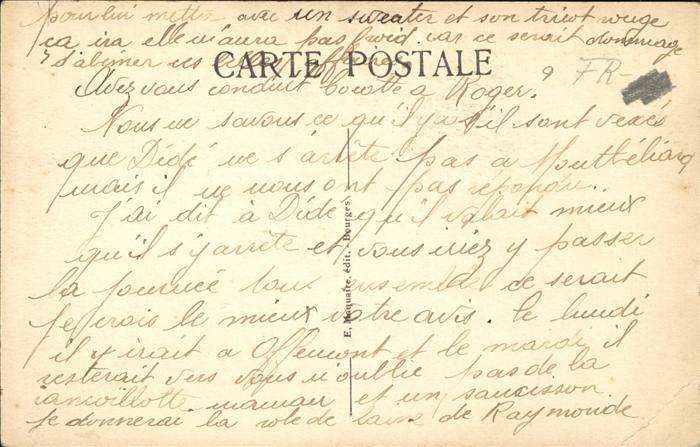 pour lui mettre avec un sweater et son tricot rouge
ça ira elle n'aura pas froid, car ce serait dommage
s'abimer
CARTE POSTALE
9 FR-
Avez vous conduit Cocotte a Roger.
Nous ne savons ce qu'il y a s'il sont vexés
que Dédé ne s'arrête pas a Montbéliard
mais il ne nous ont pas répondu..
J'ai dit à Dédé qu'il valait mieux
qu'il s'y arrête et vous iriez y passer
la journée tous ensemble ce serait
je crois le mieux votre avis. le lundi
il y irait a Offemont et le mardi il
resterait vers vous n'oublie pas de la
cancoillotte maman et un saucisson.
je donnerai la robe de laine de Raymonde
E. Mauuaire, édit., Bourges